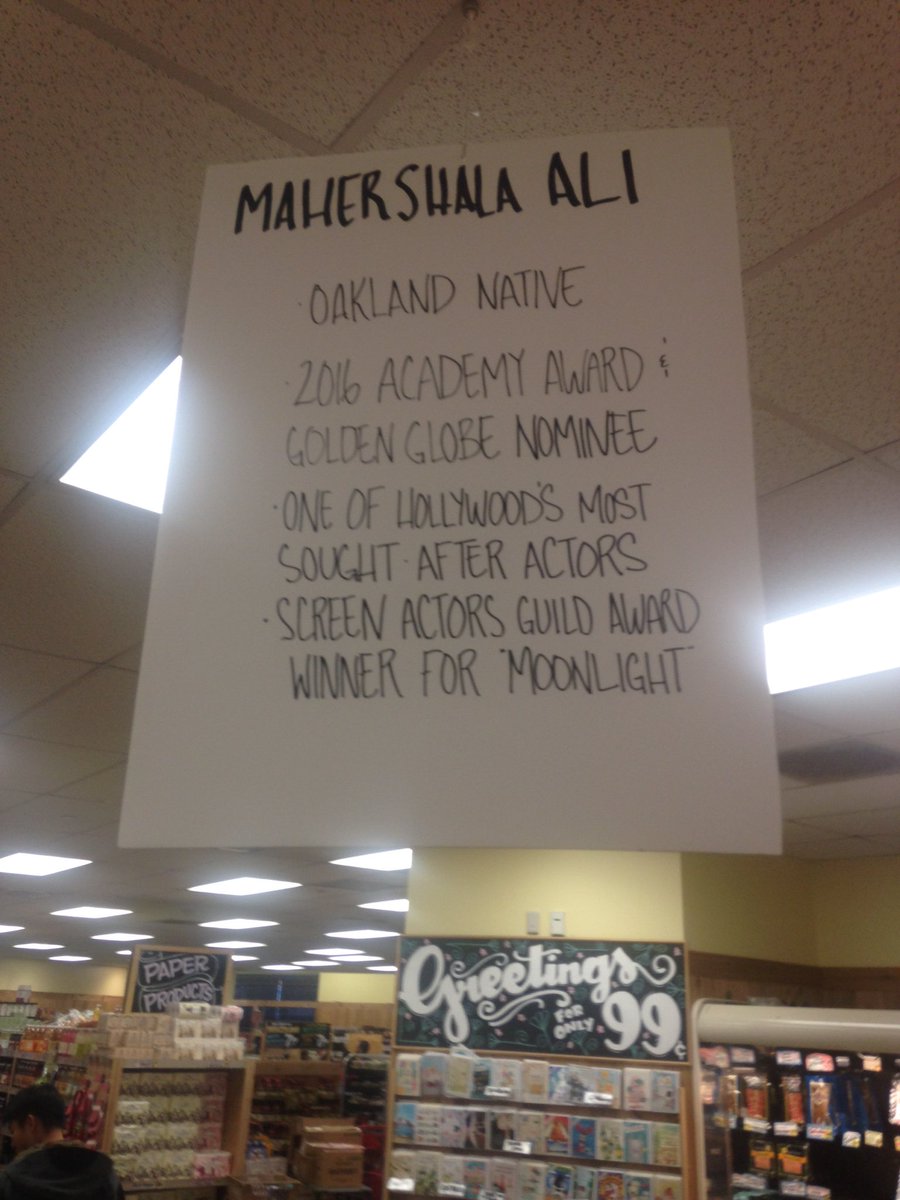 MAHERSHALA ALI
·OAKLAND NATIVE
·2016 ACADEMY AWARD &
GOLDEN GLOBE NOMINEE
·ONE OF HOLLYWOOD'S MOST
SOUGHT·AFTER ACTORS
·SCREEN ACTORS GUILD AWARD
WINNER FOR "MOONLIGHT"
PAPER
PRODUCTS
Greetings
FOR
ONLY 99¢